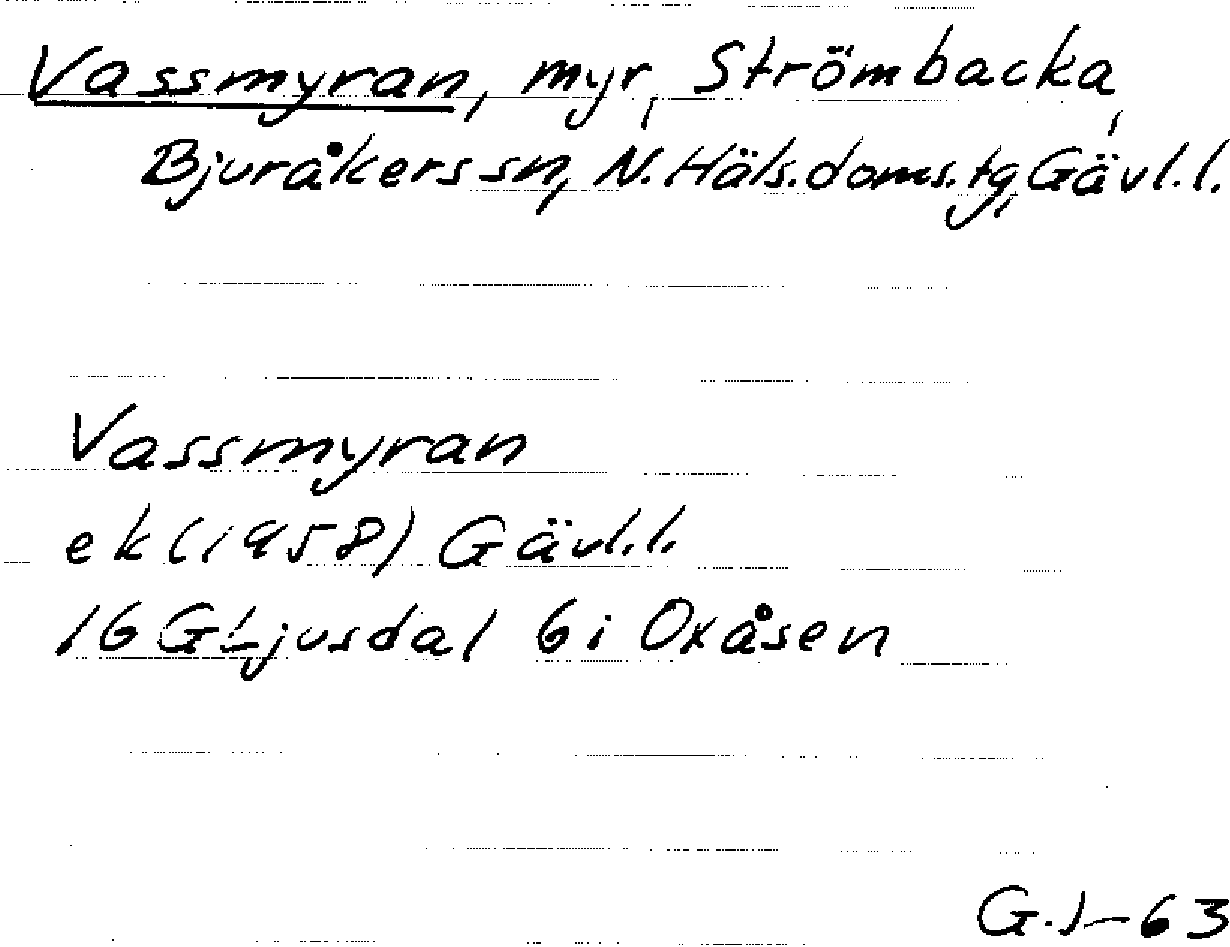 Vassmyran, myr, Strömbacka,
Bjuråkers sn, N. Häls. doms. tg, Gävl. l.
Vassmyran
ek (1958) Gävl. l.
16 G Ljusdal 6 i Oxåsen
G.J-63